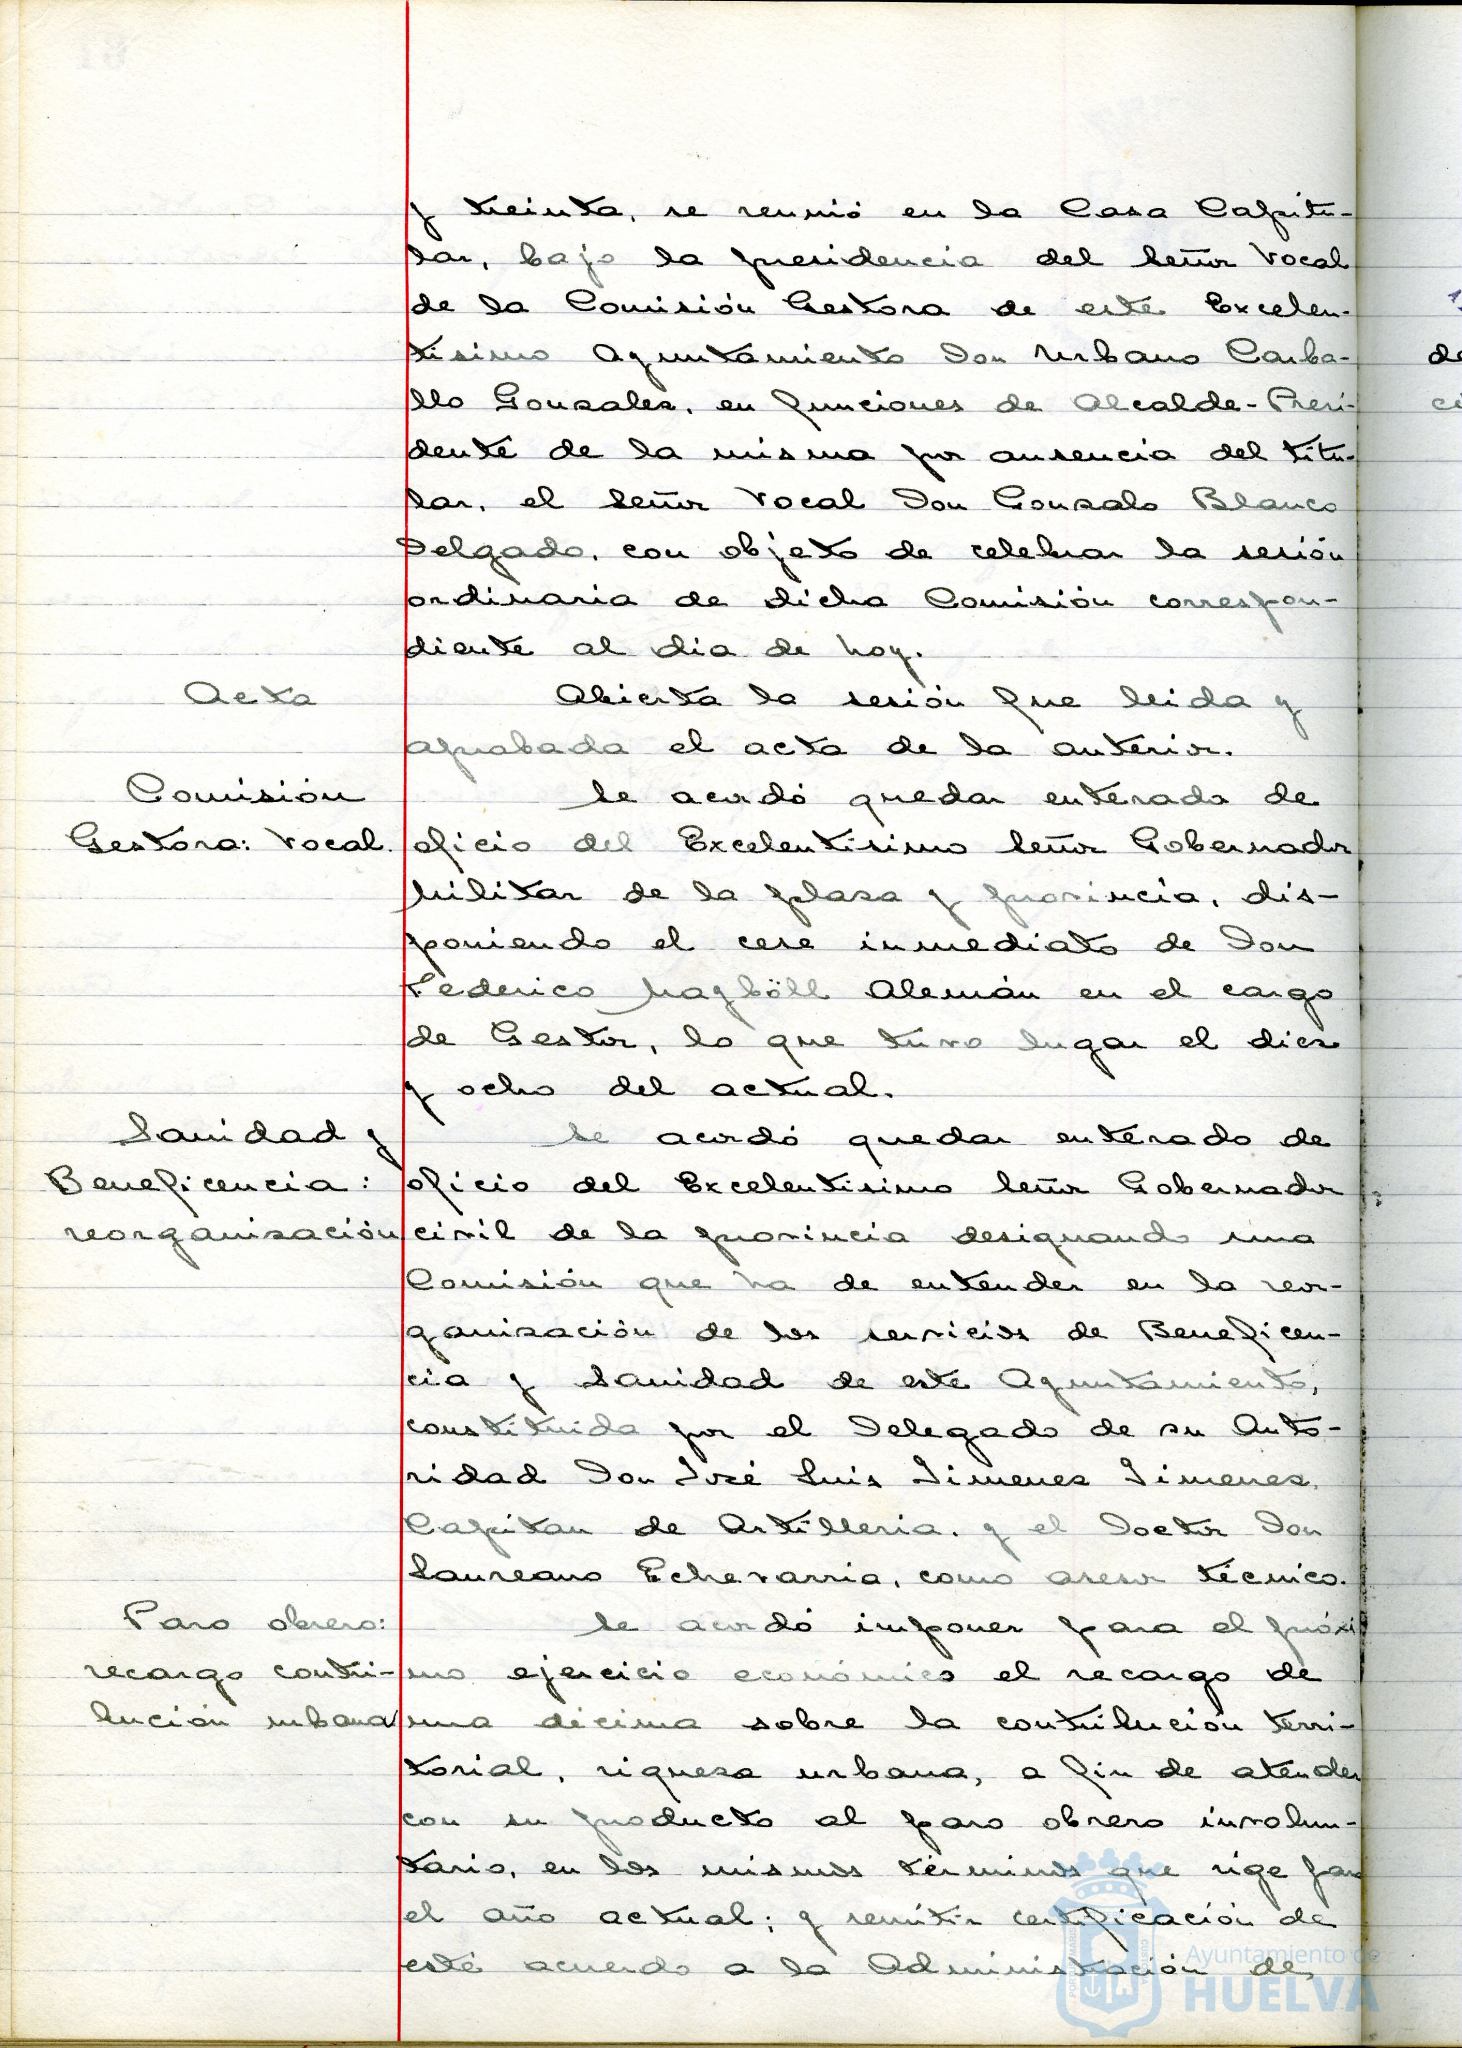 y treinta, se reunió en la Casa Capitu-
lar, bajo la presidencia del Señor Vocal
de la Comisión Gestora de este Excelen-
tísimo Ayuntamiento Don Urbano Carba-
llo Gonzalez, en funciones de Alcalde-Presi-
dente de la misma por ausencia del titu-
lar, el Señor Vocal Don Gonzalo Blanco
Delgado, con objeto de celebrar la sesión
ordinaria de dicha Comisión correspon-
diente al dia de hoy.
Acta
Abierta la sesión fue leida y
aprobada el acta de la anterior.
Comisión
Gestora: Vocal.
Se acordó quedar enterado de
oficio del Excelentisimo Señor Gobernador
Militar de la plaza y provincia, dis-
poniendo el cese inmediato de Don
Federico Alemán en el cargo
de Gestor, lo que tuvo lugar el diez
y ocho del actual.
Sanidad y
Beneficencia:
reorganización
Se acordó quedar enterado de
oficio del Excelentisimo Señor Gobernador
civil de la provincia designando una
Comisión que ha de entender en la reor-
ganización de los servicios de Beneficen-
cia y Sanidad de este Ayuntamiento,
constituida por el Delegado de su Auto-
ridad Don José Luis Jimenez Jimenez,
Capitan de Artilleria, y el Doctor Don
Laureano Echevarria, como asesor técnico.
Paro obrero:
recargo contri-
bución urbana
Se acordó imponer para el próxi
mo ejercicio económico el recargo de
una décima sobre la contribución terri-
torial, riqueza urbana, a fin de atender
con su producto al paro obrero involun-
tario, en los mismos términos que rige para
el año actual; y remitir certificación de
este acuerdo a la Administación de
Ayuntamiento de
HUELVA